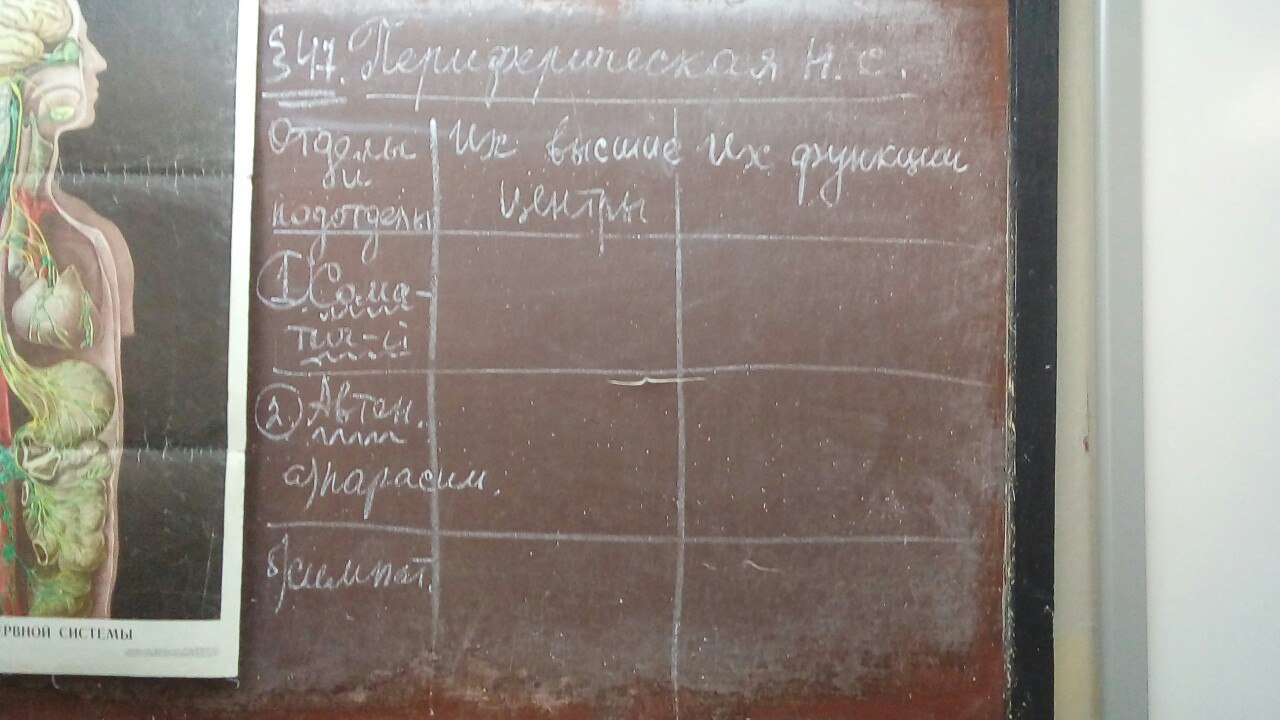 § 47. Периферическая н. с.
Отделы
и
подотделы
Их высшие
центры
Их функции
1. Сома-
тич-й
2. Автон.
а) парасим.
б) симпат.
ЕРВНОЙ СИСТЕМЫ